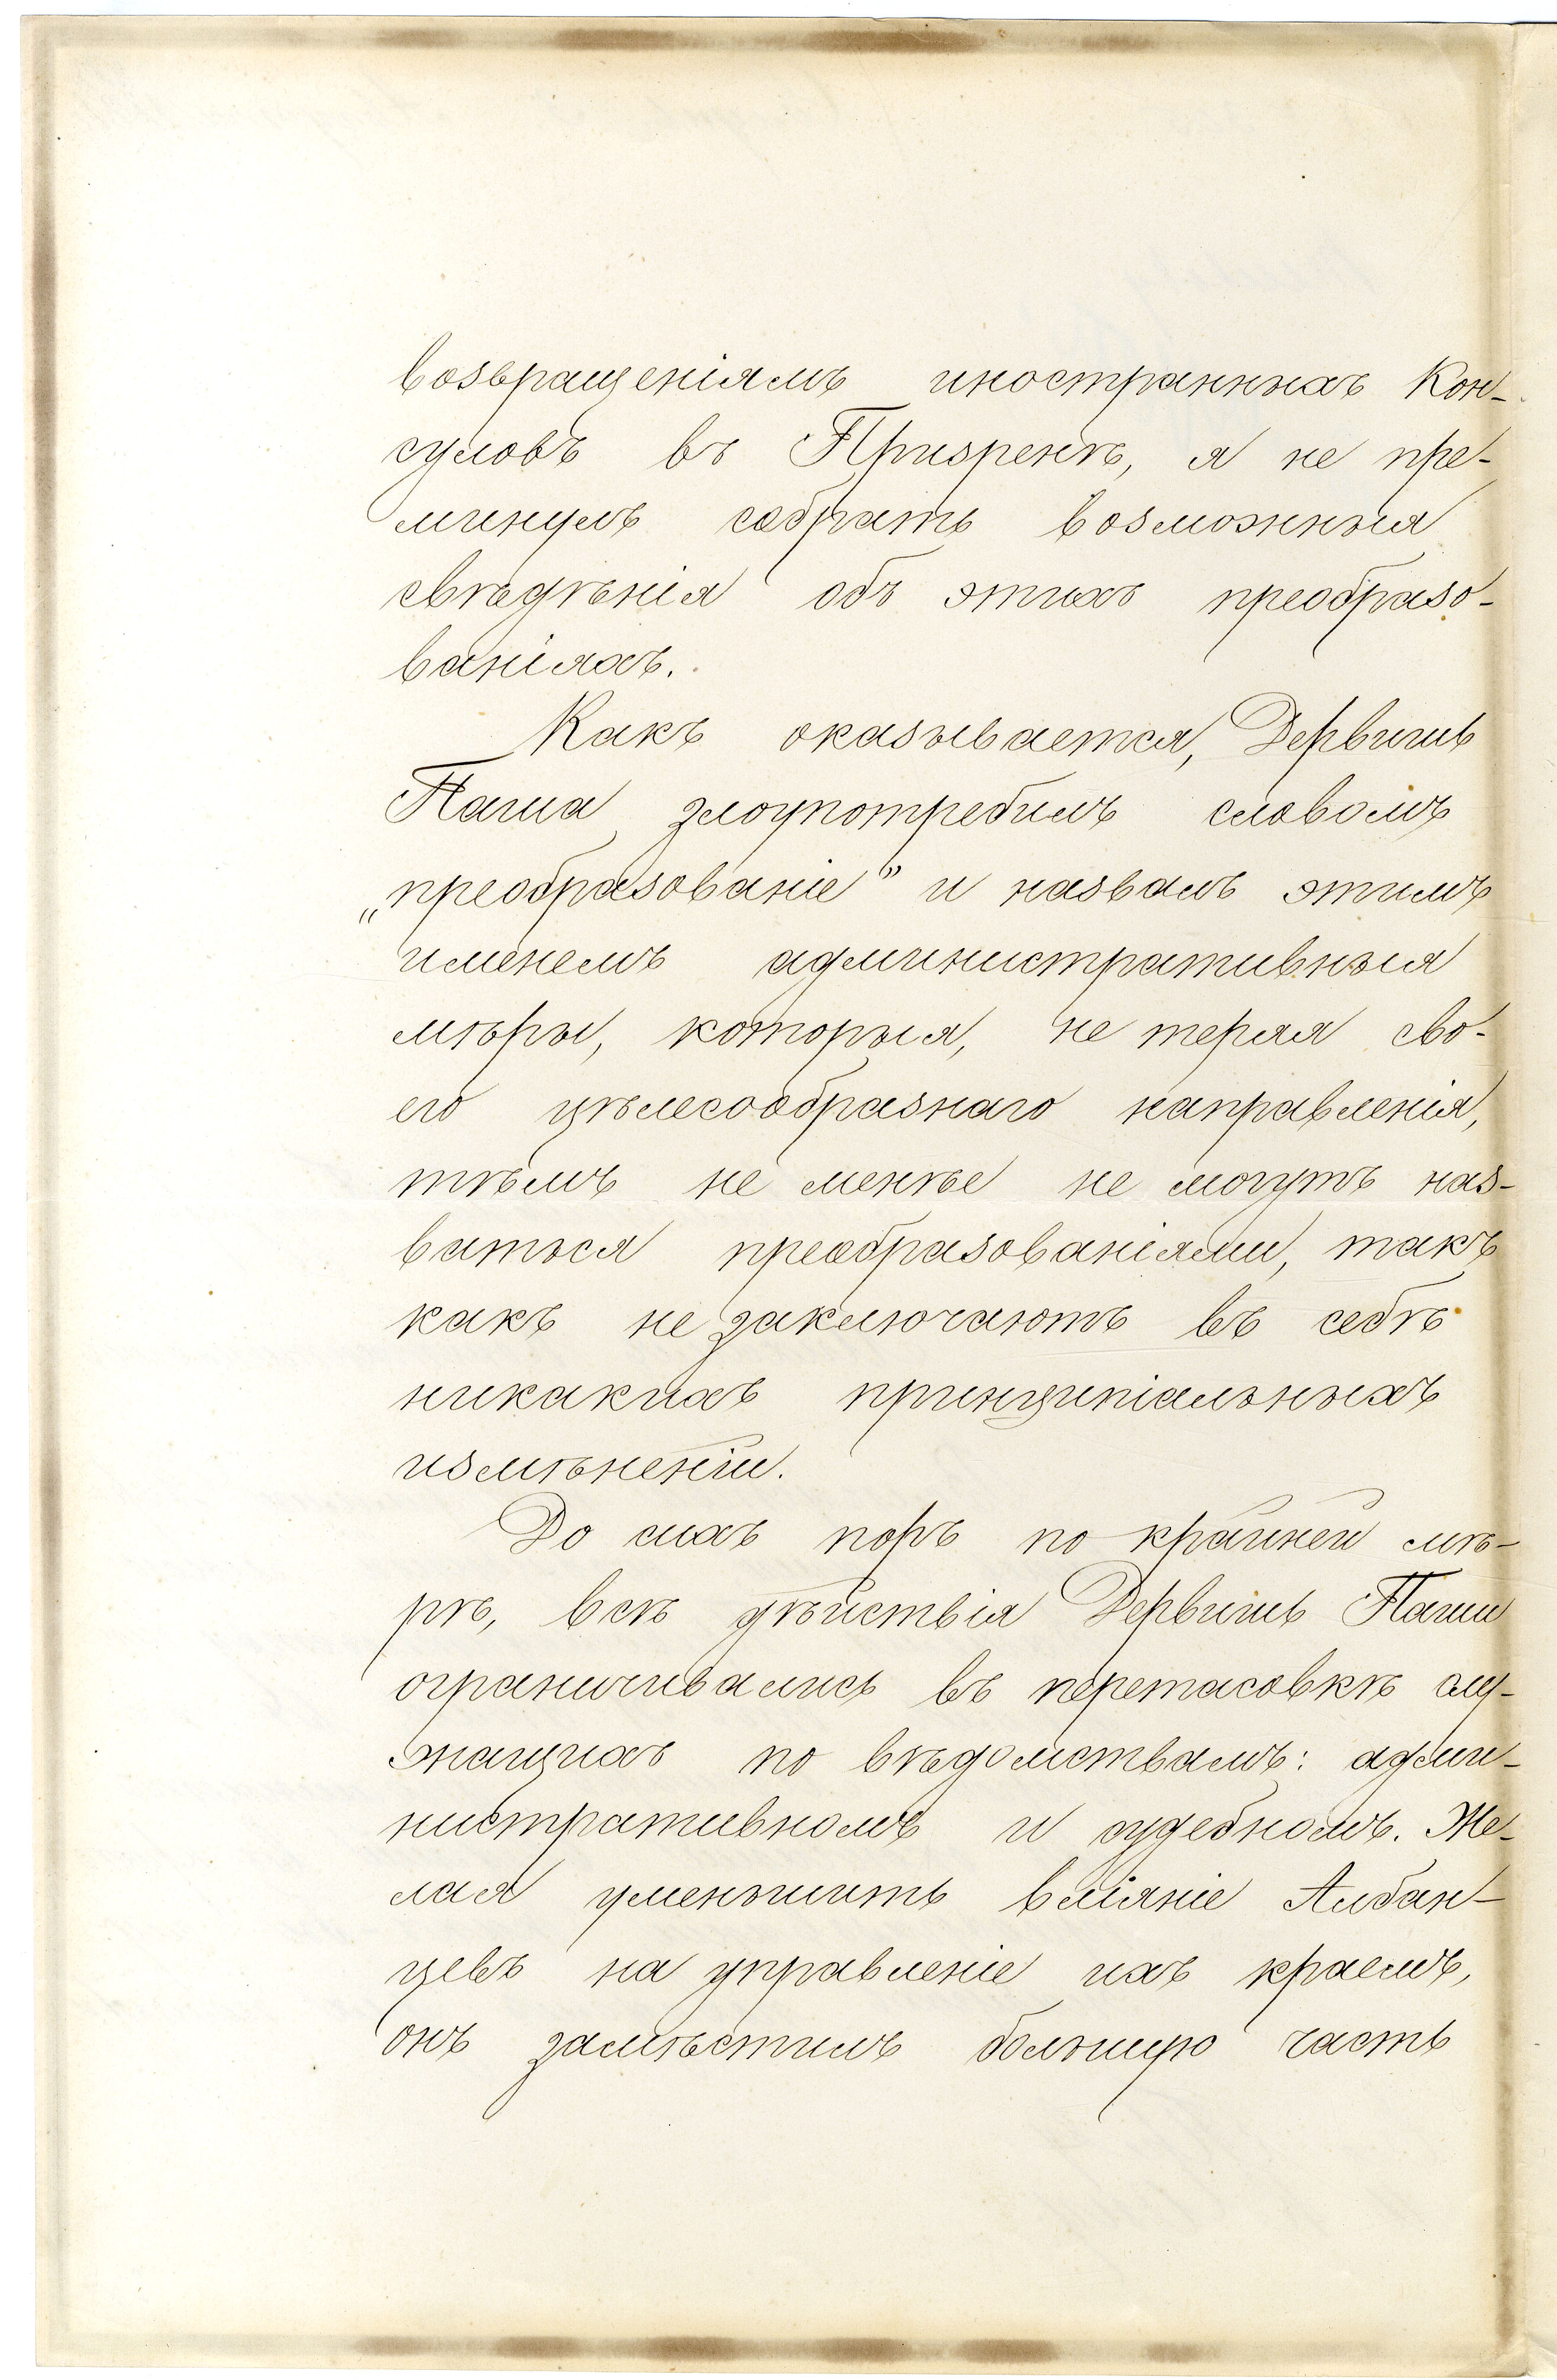 возвращеніямъ иностранныхъ Кон-
суловъ въ Призренѣ, я не пре-
минулъ собрать возможныя
свѣдѣнія объ этихъ преобразо-
ваніяхъ.
Какъ оказывается, Дервишъ
Паша злоупотребилъ словомъ
„преобразованіе" и назвалъ этимъ
именемъ административныя
мѣры, которыя, не теряя сво-
его цѣлесообразнаго направленія,
тѣмъ не менѣе не могутъ наз-
ваться преобразованіями, такъ
какъ не заключаютъ въ себѣ
никакихъ принципіальныхъ
измѣненій.
До сихъ поръ по крайней мѣ-
рѣ, всѣ дѣйствія Дервишъ Паши
ограничивались въ перетасовкѣ слу-
жащихъ по вѣдомствамъ: адми-
нистративномъ и судебномъ. Же-
лая уменьшить вліяніе Албан-
цевъ на управленіе ихъ краемъ,
онъ замѣстилъ большую часть